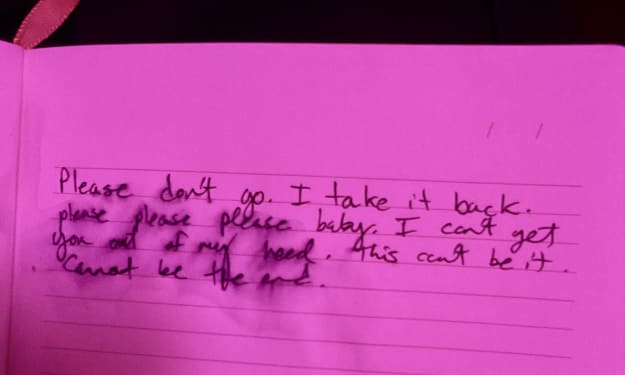 Please don't go. I take it back.
please please please baby. I can't get
you out of my head. this can't be it.
Cannot be the end.